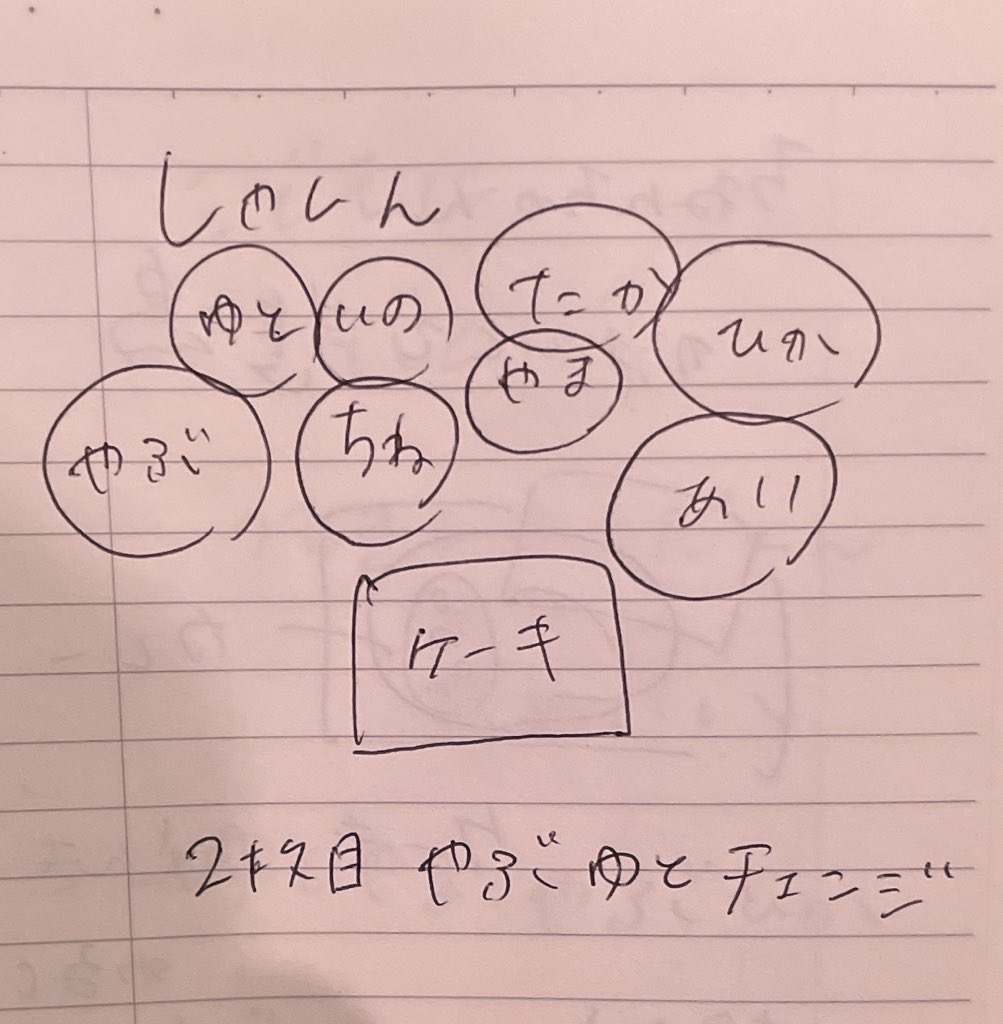 しゃしん
ゆと いの たかき ひか
やぶ ちね やま あり
ケーキ
2枚目 やぶゆとチェンジ